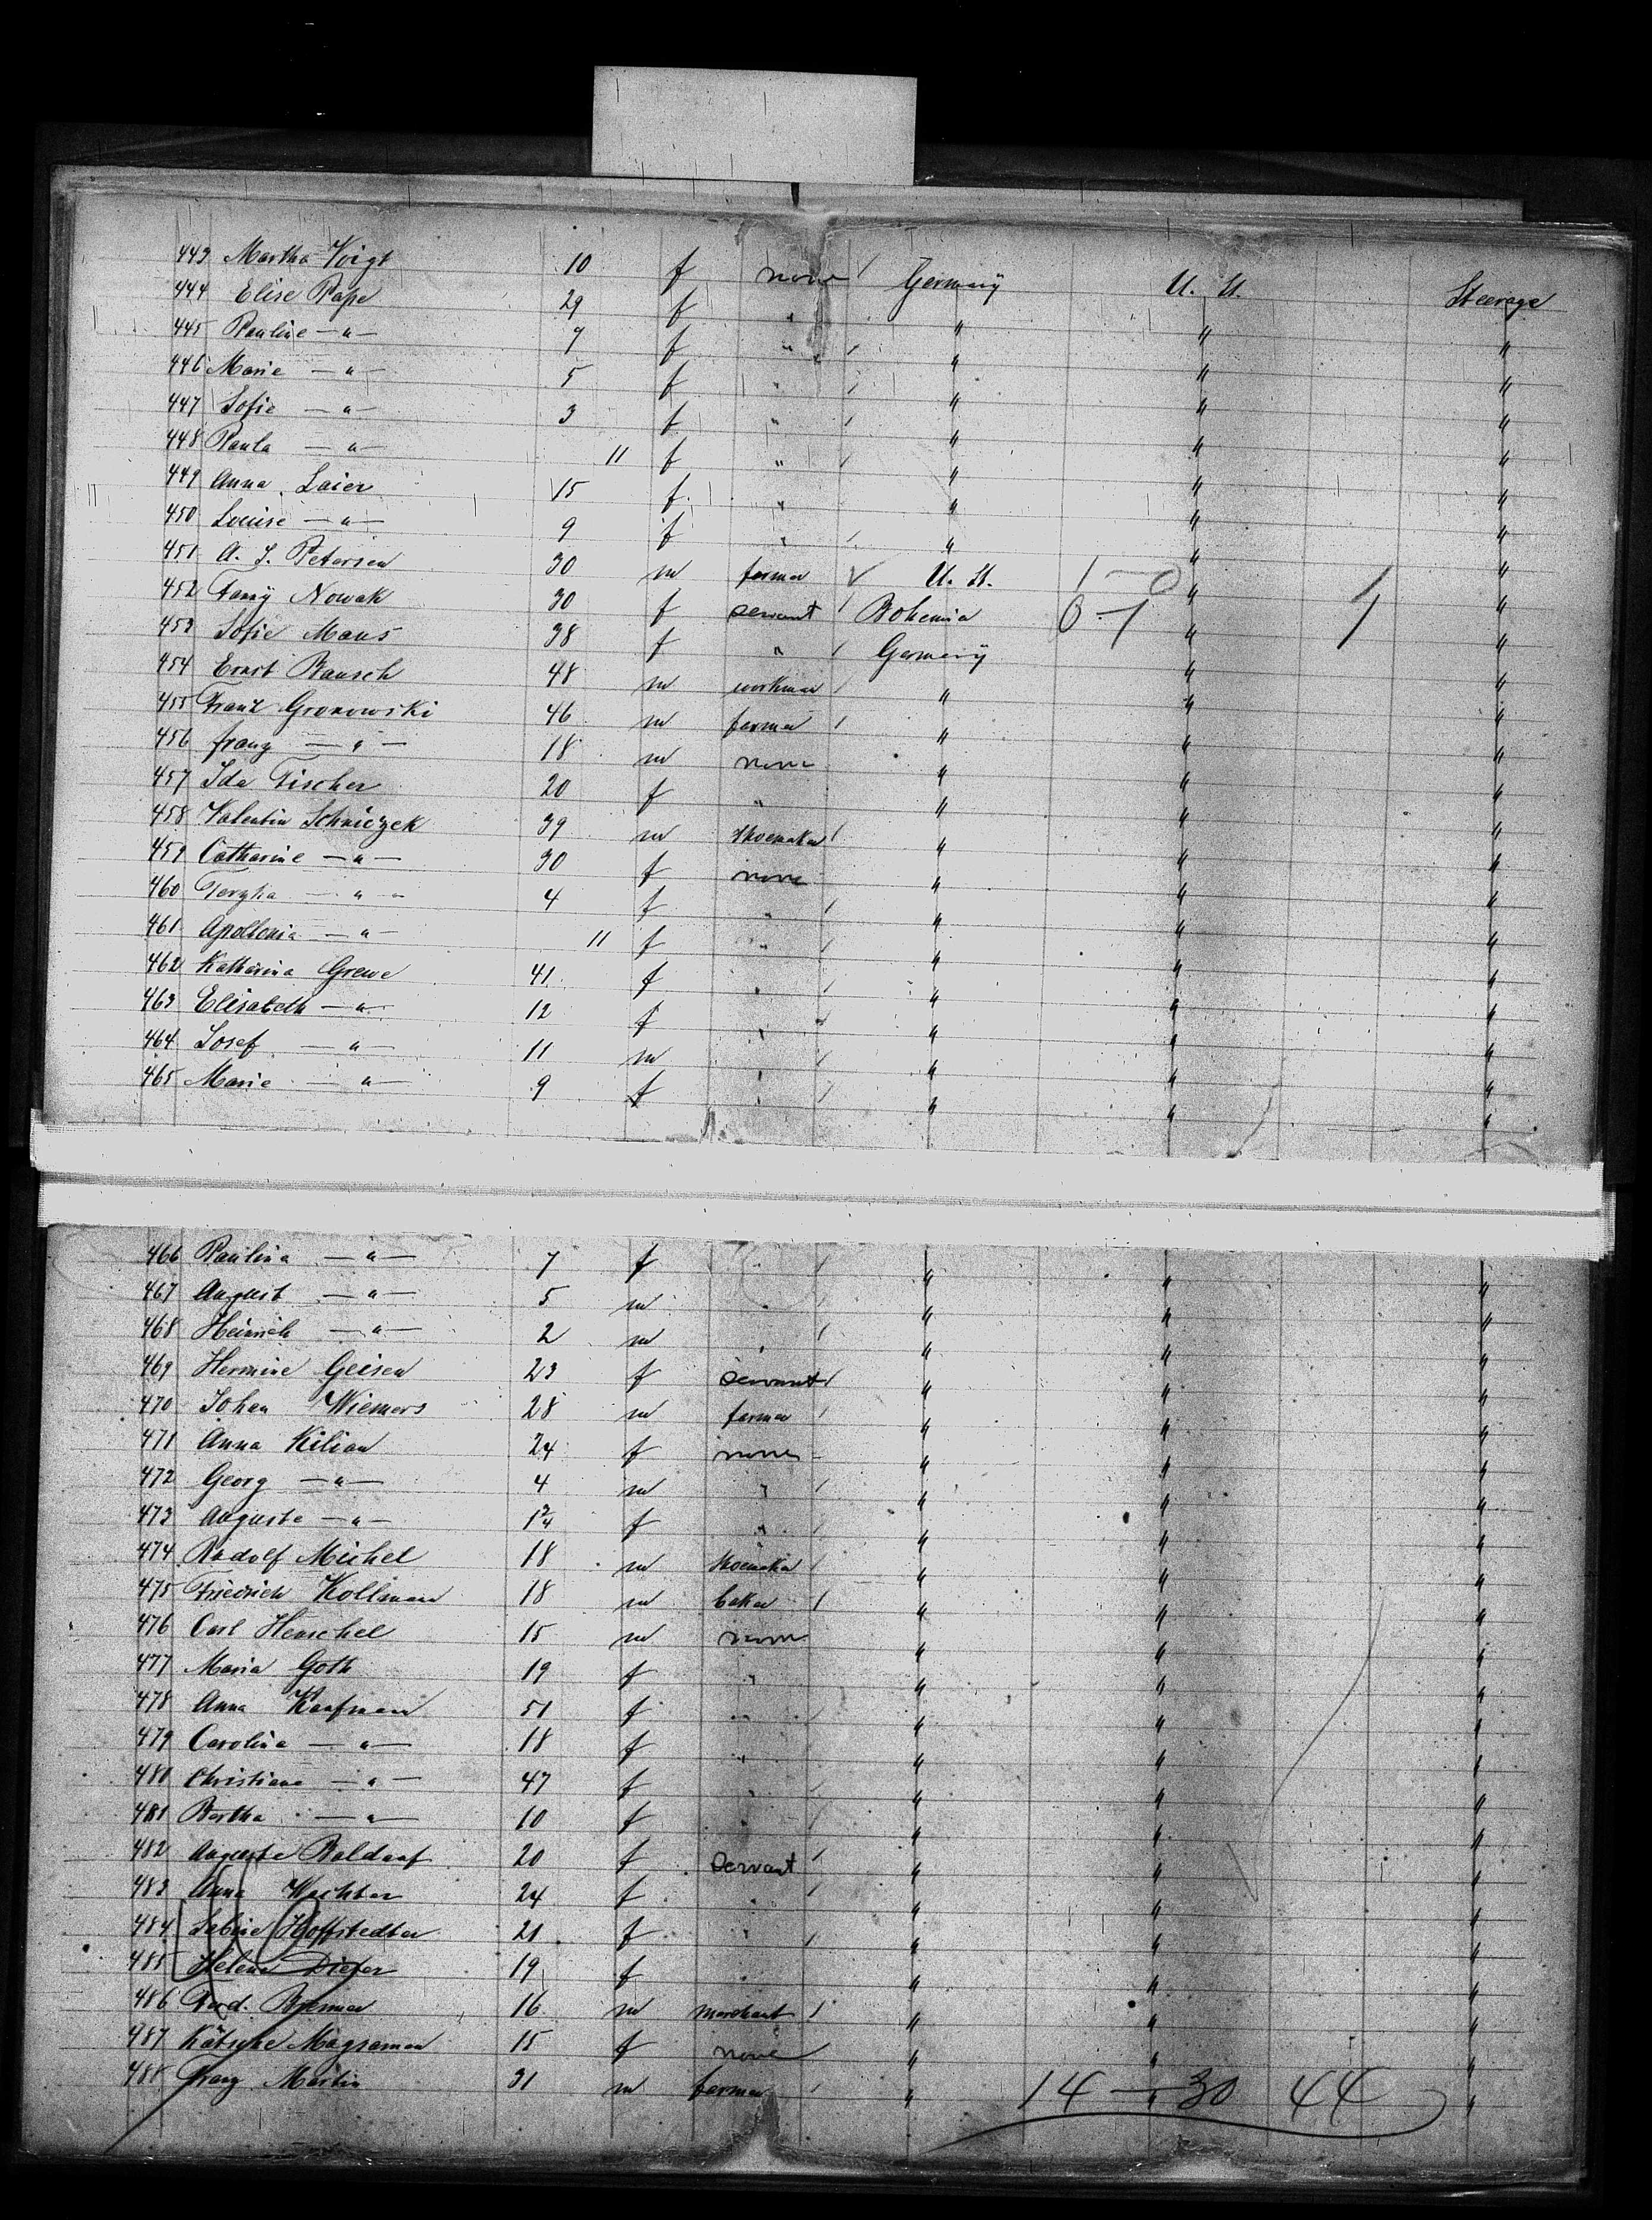 443 Martha Voigt 10 f none / Germany U. St. Steerage
444 Elise Pape 29 f " " " "
445 Pauline —"— 7 f " / " " "
446 Marie —"— 5 f " / " " "
447 Sofie —"— 3 f " / " " "
448 Paula —"— 11 f " / " " "
449 Anna Laier 15 f " " " "
450 Louise —"— 9 f " / " " "
451 A. J. Petersen 30 m farmer √ U. St. 1—0 " "
452 Fanny Nowak 30 f servant / Bohemia 0-1 " 1 "
453 Sofie Maus 38 f " / Germany " "
454 Ernst Bausch 48 m workman / " " "
455 Franz Gronowski 46 m farmer / " " "
456 franz —"— 18 m none " " "
457 Ida Fischer 20 f " " " "
458 Valentin 39 m shoemaker / " " "
459 Catharine —"— 30 f none " " "
460 —"— 4 f " / " " "
461 Apollonia —"— 11 f " / " " "
462 Katharina Grewe 41 f " / " " "
463 Elisabeth —"— 12 f " / " " "
464 Josef —"— 11 m " / " " "
465 Marie —"— 9 f " / " " "
466 Paulina —"— 7 f " / " " "
467 August —"— 5 m " / " " "
468 Heinrich —"— 2 m " / " " "
469 Hermine Geisen 23 f servant / " " "
470 Johan Wiemers 28 m farmer / " " "
471 Anna Kilian 24 f none - " " "
472 Georg —"— 4 m " / " " "
473 Auguste —"— 1 3/4 f " / " " "
474 Rudolf Michel 18 m shoemaker / " " "
475 Friedrich Kollmann 18 m baker / " " "
476 Carl Henschel 15 m none " " "
477 Maria Goth 19 f " " " "
478 Anna Kaufmann 51 f " / " " "
479 Carolina —"— 18 f " " " "
480 Christiane —"— 47 f " / " " "
481 Bertha —"— 10 f " / " " "
482 Auguste Baldauf 20 f servant / " " "
483 Anna Wachter 24 f " / " " "
484 Sabine Hoffstedter 21 f " / " " "
485 Helena 19 f " " " "
486 Ferd. 16 m merchant / " " "
487 15 f none " " "
488 Franz Martin 31 m farmer / " " "
14 — 30 44